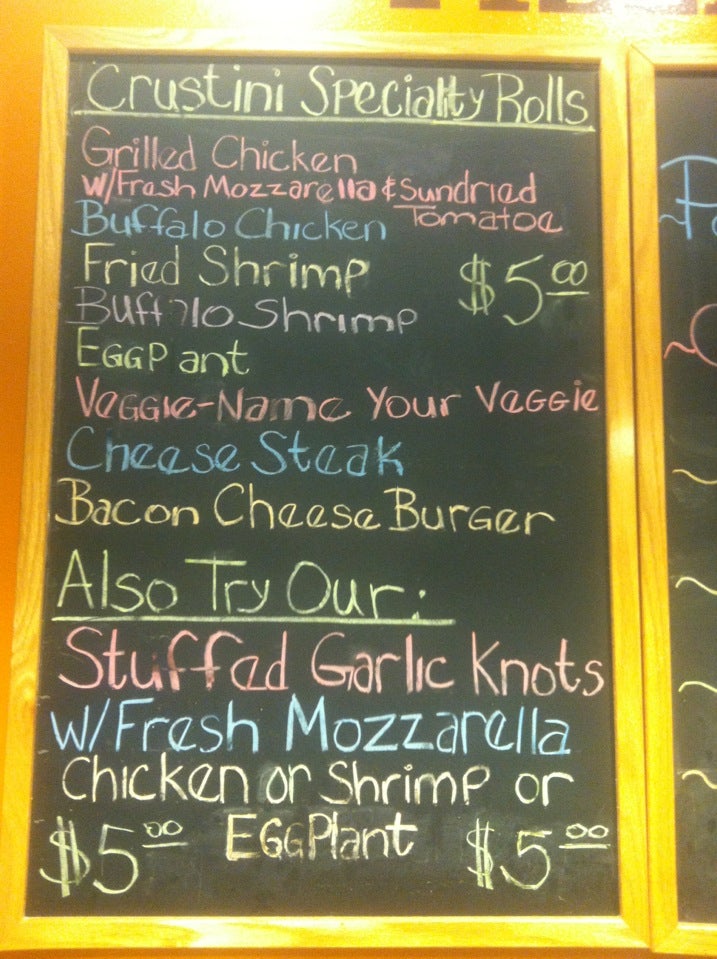 Crustini Specialty Rolls
Grilled Chicken
w/Fresh Mozzarella & Sundried
Tomatoe
Buffalo Chicken
Fried Shrimp $5.00
Buff lo Shrimp
EggP ant
Veggie-Name Your Veggie
Cheese Steak
Bacon Cheese Burger
Also Try Our:
Stuffed Garlic Knots
w/Fresh Mozzarella
Chicken or Shrimp or
$5.00 EggPlant $5.00